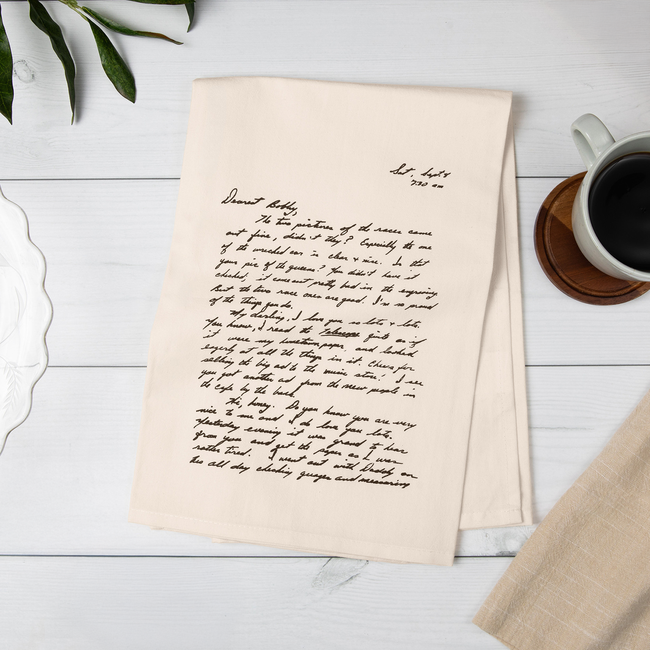 Sat, Sept 8
7:30 am
Dearest Bobby,
The two pictures of the races came
out fine, didn't they? Especially the one
of the wrecked car is clear & nice. Is that
your pic of the queens? You didn't have it
checked, it came out pretty bad in the engraving
But the two race ones are good. I'm so proud
of the things you do.
My darling, I love you so lots & lots.
You know, I read the first as if
it were my hometown paper, and looked
eagerly at all the things in it. Cheers for
selling the big ad to the music store! I see
you got another ad from the new people in
the Cafe by the bank.
Hi, honey. Do you know you are very
nice to me and I do love you lots.
Yesterday evening it was grand to hear
from you and get the paper as I was
rather tired. I went out with Daddy on
all day checking gauges and measuring